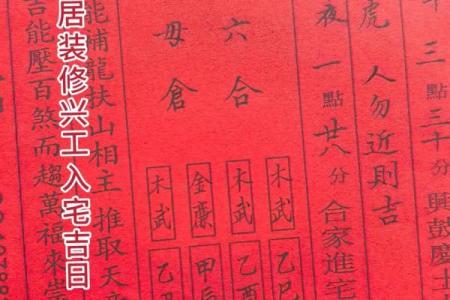 三點三十分興鼓慶士
虎人勿近則吉
夜一點廿八分合家進宅
六合
毋倉
木武乙巳
木武乙酉
金廉甲辰
木武乙
能補龍扶山相主 推取天
居装修兴工入宅吉日
吉能壓百煞而趨萬福來